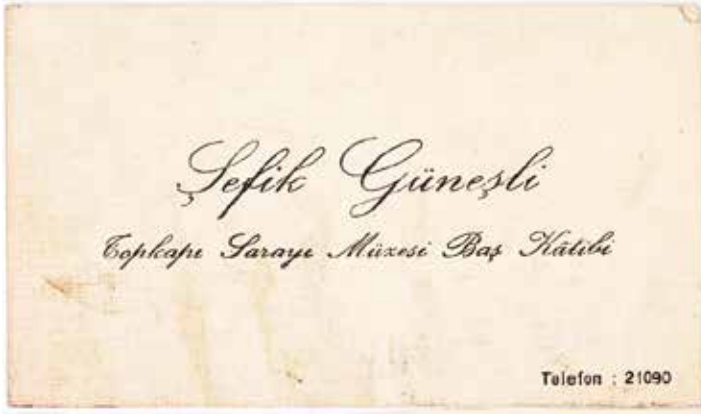 Şefik Güneşli
Topkapı Sarayı Müzesi Baş Kâtibi
Telefon : 21090